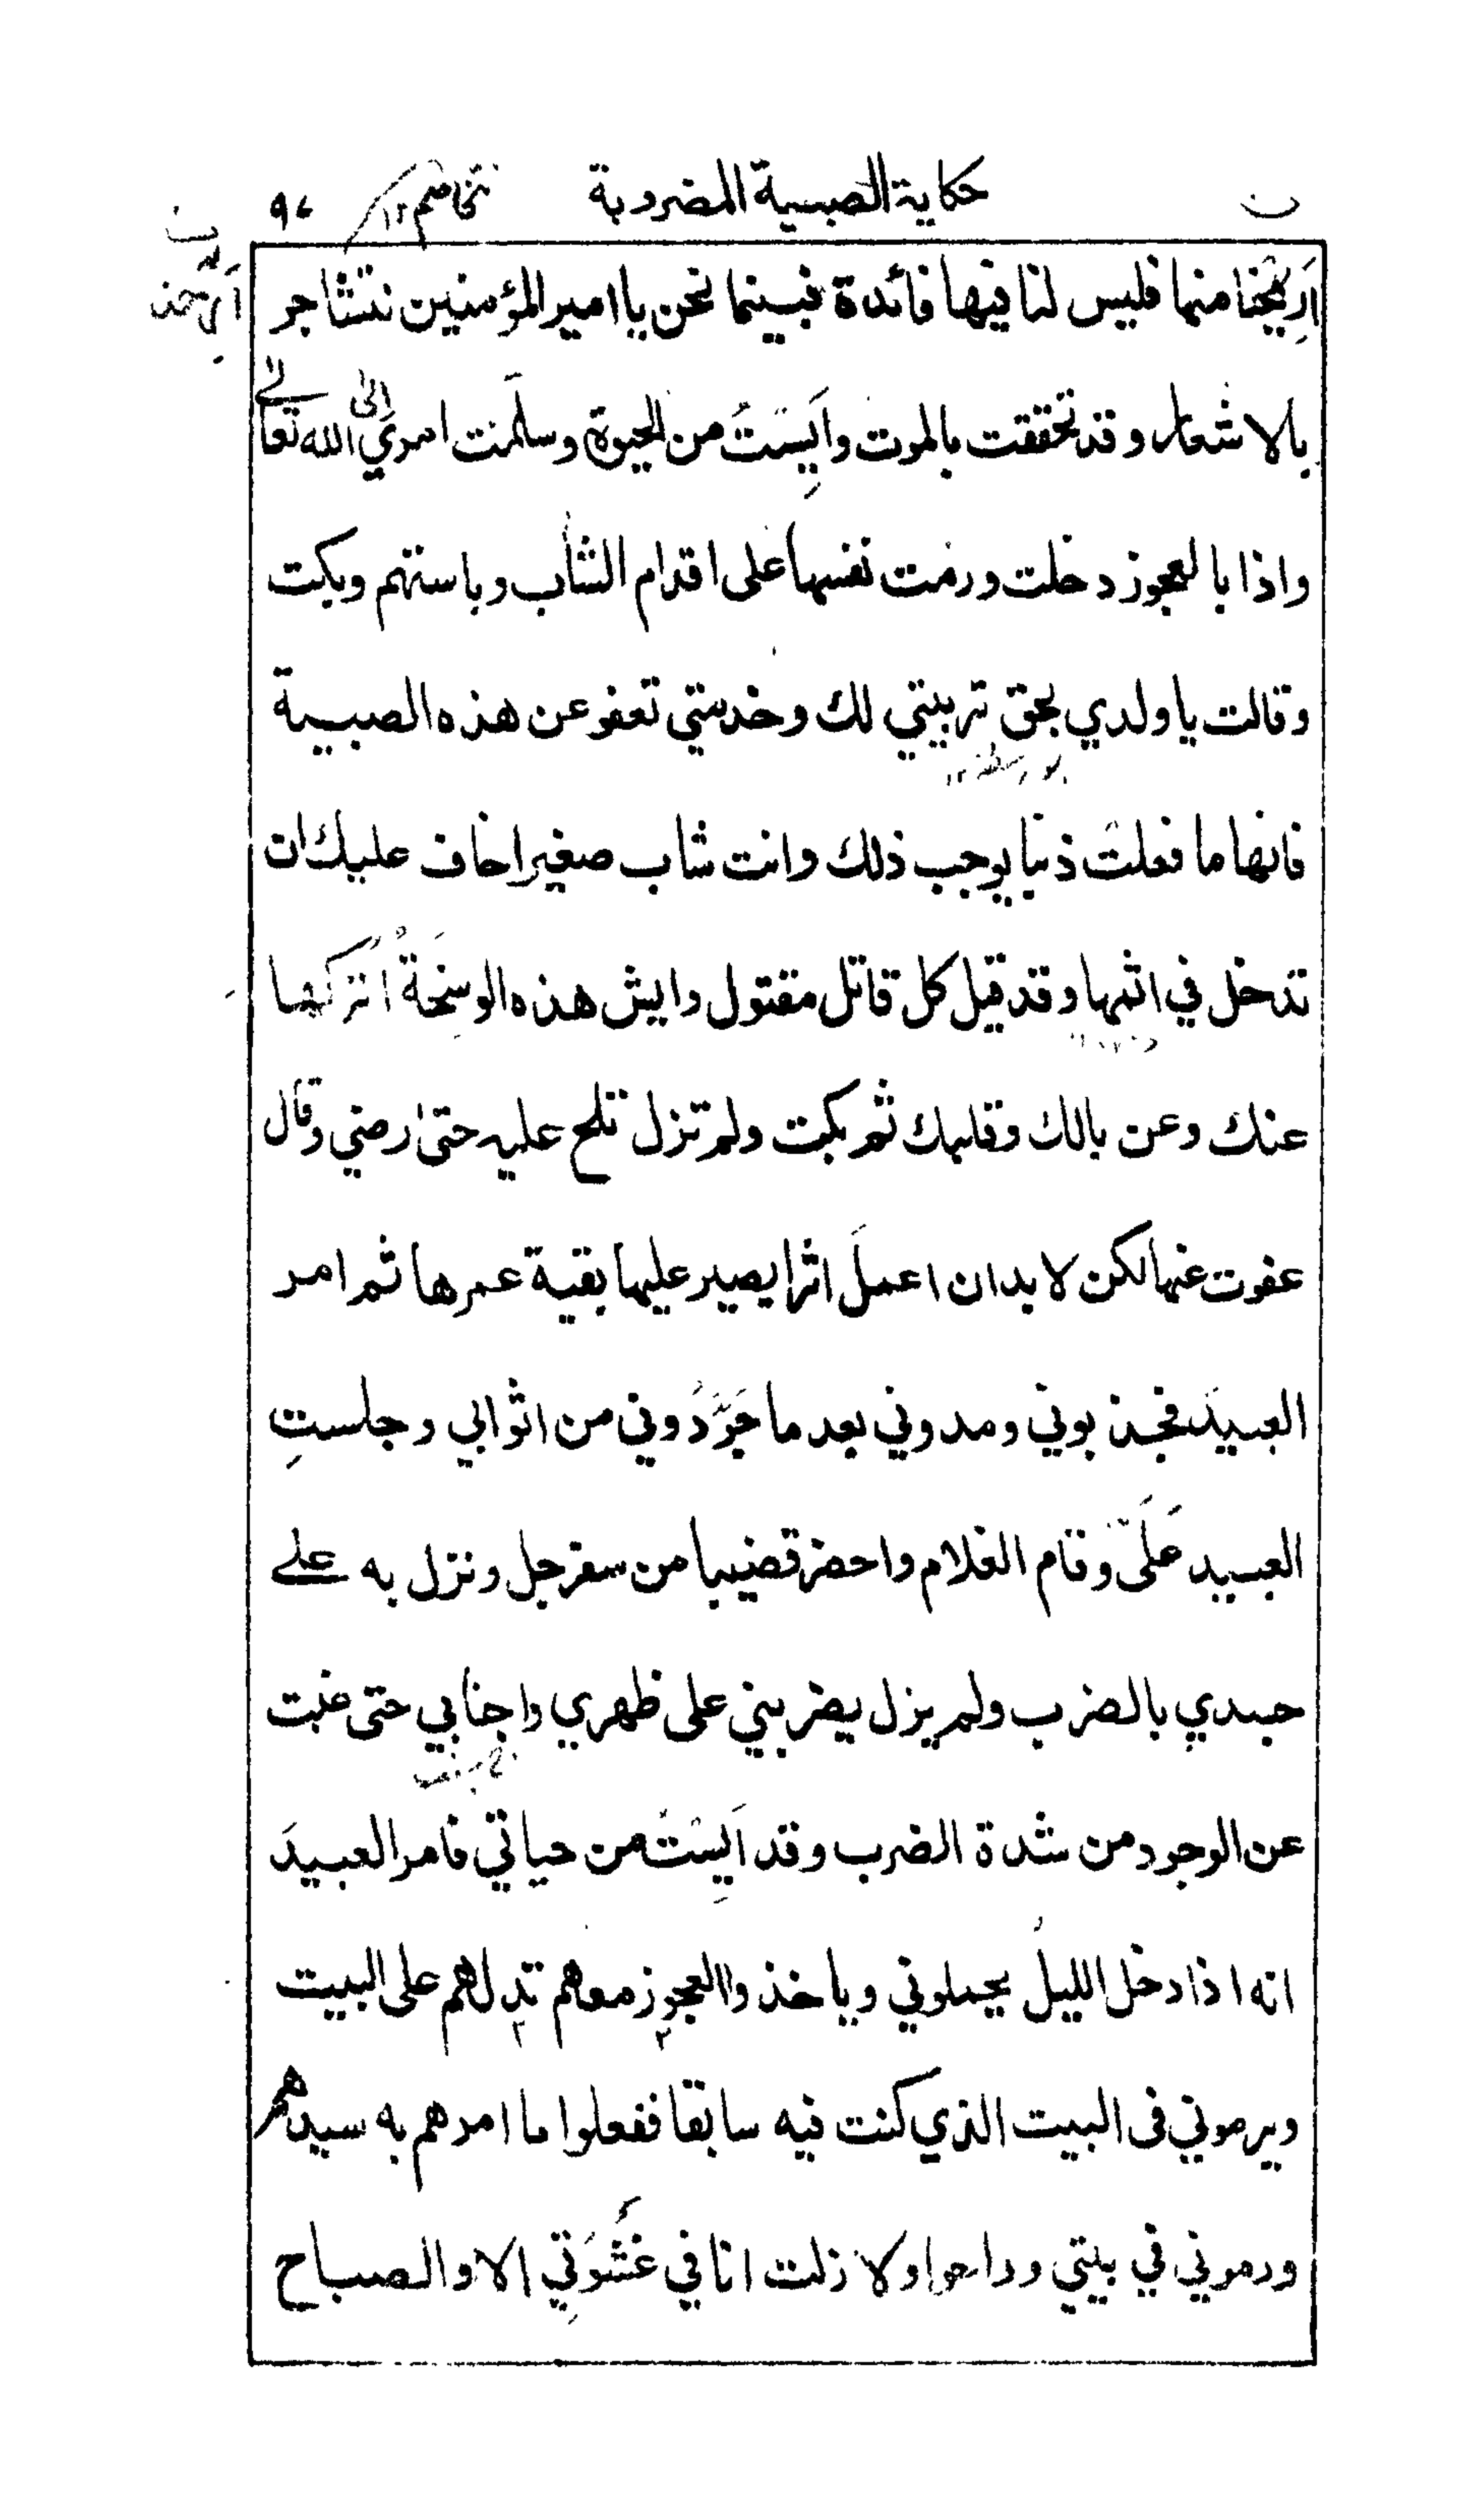 حكاية الصبية المضروبة ٩٧
اَرِيْحْنا منها فليس لنا فيها فائدة فبينما نحن يا امير المؤمنين نتشاجر
بالاشعار وقد تحققت بالموت واَيِسْتُ من الحيوة وسلّمت امري الى الله تعالى
واذا بالعجوز دخلت ورمت نفسها على اقدام الشاب وباستهم وبكت
وقالت يا ولدي بحق تربيتي لك وخدمتي تعفو عن هذه الصبية
فانها ما فعلت ذنبا يوجب ذلك وانت شاب صغير اخاف عليك ان
تدخل في اثمها وقد قيل كل قاتل مقتول وايش هذه الوسِخَةُ اتركها
عنك وعن بالك وقلبك ثم بكت ولم تزل تلح عليه حتى ارضي وقال
عفوت عنها لكن لا بد ان اعملَ اثرا يصير عليها بقية عمرها ثم امر
العبيدَ فجذبوني ومدوني بعد ما جَرَّدُوني من اثوابي وجلستِ
العبيد عَلَىَّ وقام الغلام واحضر قضيبا من سفرجل ونزل به على
جسدي بالضرب ولم يزل يضربني على ظهري واجنابي حتى غبت
عن الوجود من شدة الضرب وقد اَيِسْتُ من حياتي فامر العبيدَ
انه اذا دخل الليلُ يحملوني وياخذوا العجوز معهم تدلهم على البيت
ويرموني فى البيت الذي كنت فيه سابقا ففعلوا ما امرهم به سيدهم
ورموني في بيتي وراحوا ولا زلت انا في غَشْوَتِي الا والصباح